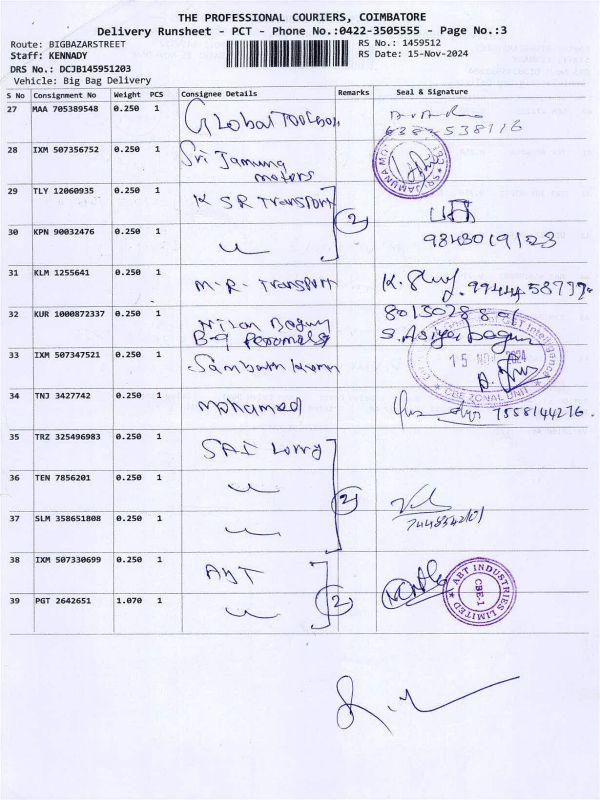 THE PROFESSIONAL COURIERS, COIMBATORE
Delivery Runsheet - PCT - Phone No.:0422-3505555 - Page No.:3
Route: BIGBAZARSTREET
RS No.: 1459512
Staff: KENNADY
RS Date: 15-Nov-2024
DRS No.: DCJB145951203
Vehicle: Big Bag Delivery
S No Consignment No Weight PCS Consignee Details Remarks Seal & Signature
27 MAA 705389548 0.250 1 Global Toolbox
28 IXM 507356752 0.250 1 Sri Jamuna
motors
29 TLY 12060935 0.250 1 K SR Transport
2
30 KPN 90032476 0.250 1 9843019123
31 KLM 1255641 0.250 1 M-R- Transport
32 KUR 1000872337 0.250 1
33 IXM 507347521 0.250 1
15 NOV 2024
CBE ZONAL UNIT
34 TNJ 3427742 0.250 1 mohamed 7558144276.
35 TRZ 325496983 0.250 1 SAI Lorry
36 TEN 7856201 0.250 1
37 SLM 358651808 0.250 1
38 IXM 507330699 0.250 1 ABT
ABT INDUSTRIES LIMITED
CBE-1
39 PGT 2642651 1.070 1 2